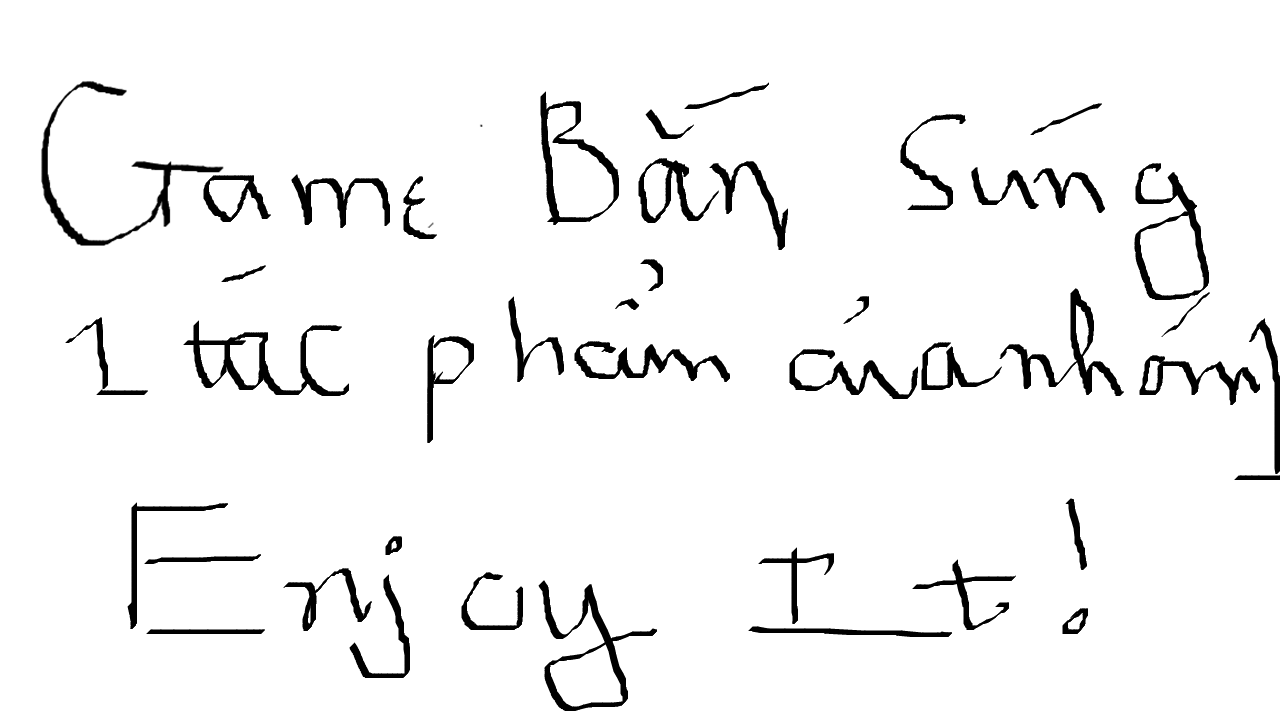 Game Bắn Súng
1 tác phẩm của nhóm 1
Enjoy It!